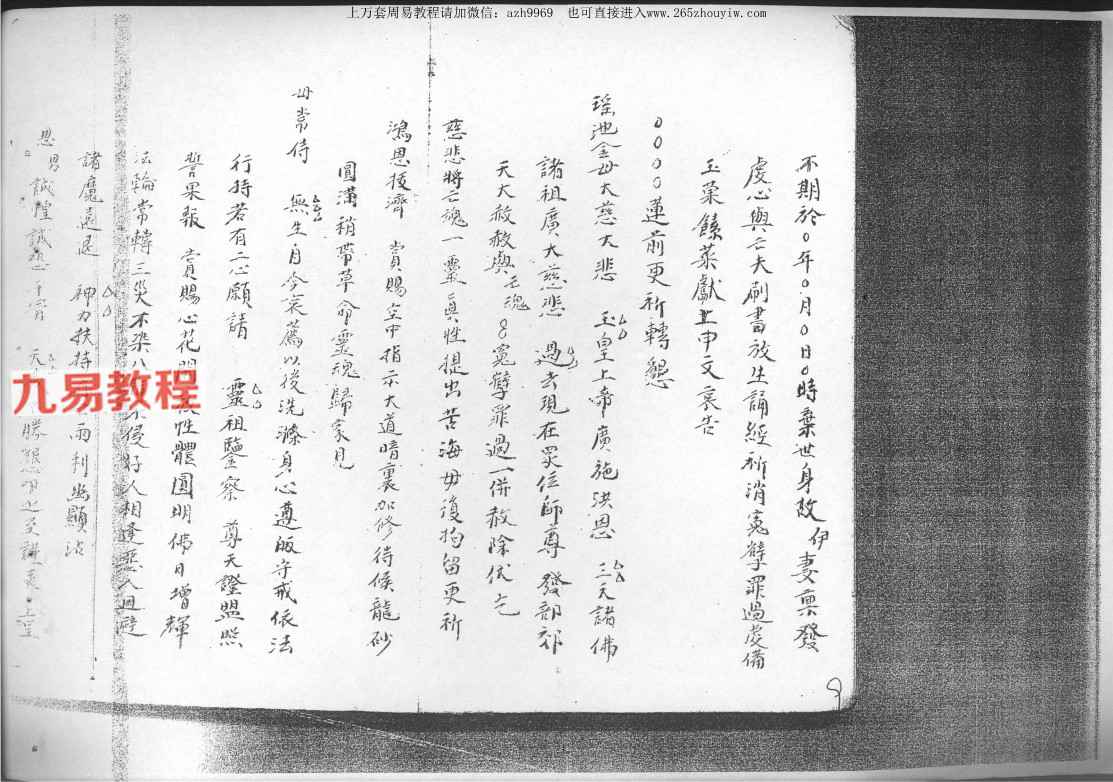 上万套周易教程请加微信：azh9969 也可直接进入www.265zhouyiw.com
不期於0年0月0日0時棄世身故 伊妻稟發
虔心與亡夫刷書放生誦經祈消寃孽罪過虔備
玉菓餚菜獻上申文哀告
0000蓮前更祈轉懇
瑶池金母大慈大悲 玉皇上帝廣施洪恩 三天諸佛
諸祖廣大慈悲 過去現在眾位師尊 發部部
天大赦赦與亡魂 寃孽罪過一併赦除伏乞
慈悲將亡魂一靈真性提出苦海毋復拘留更祈
鴻恩援濟 賞賜空中指示大道暗裏加修待候龍砂
圓滿稍帶草命靈魂歸家見
毋常侍 無生自今哀薦以後洗滌身心遵皈守戒依法
行持若有二心願請 靈祖鑒察 尊天證盟照
誓果報 賞賜心花 性體圓明佛日增輝
法輪常轉三災不染八 後好人相逢惡人迴避
諸魔遠退 神力扶持 雨利幽顯沾
恩 誠惶誠恐 天 勝 之至謹 上呈
九易教程
9